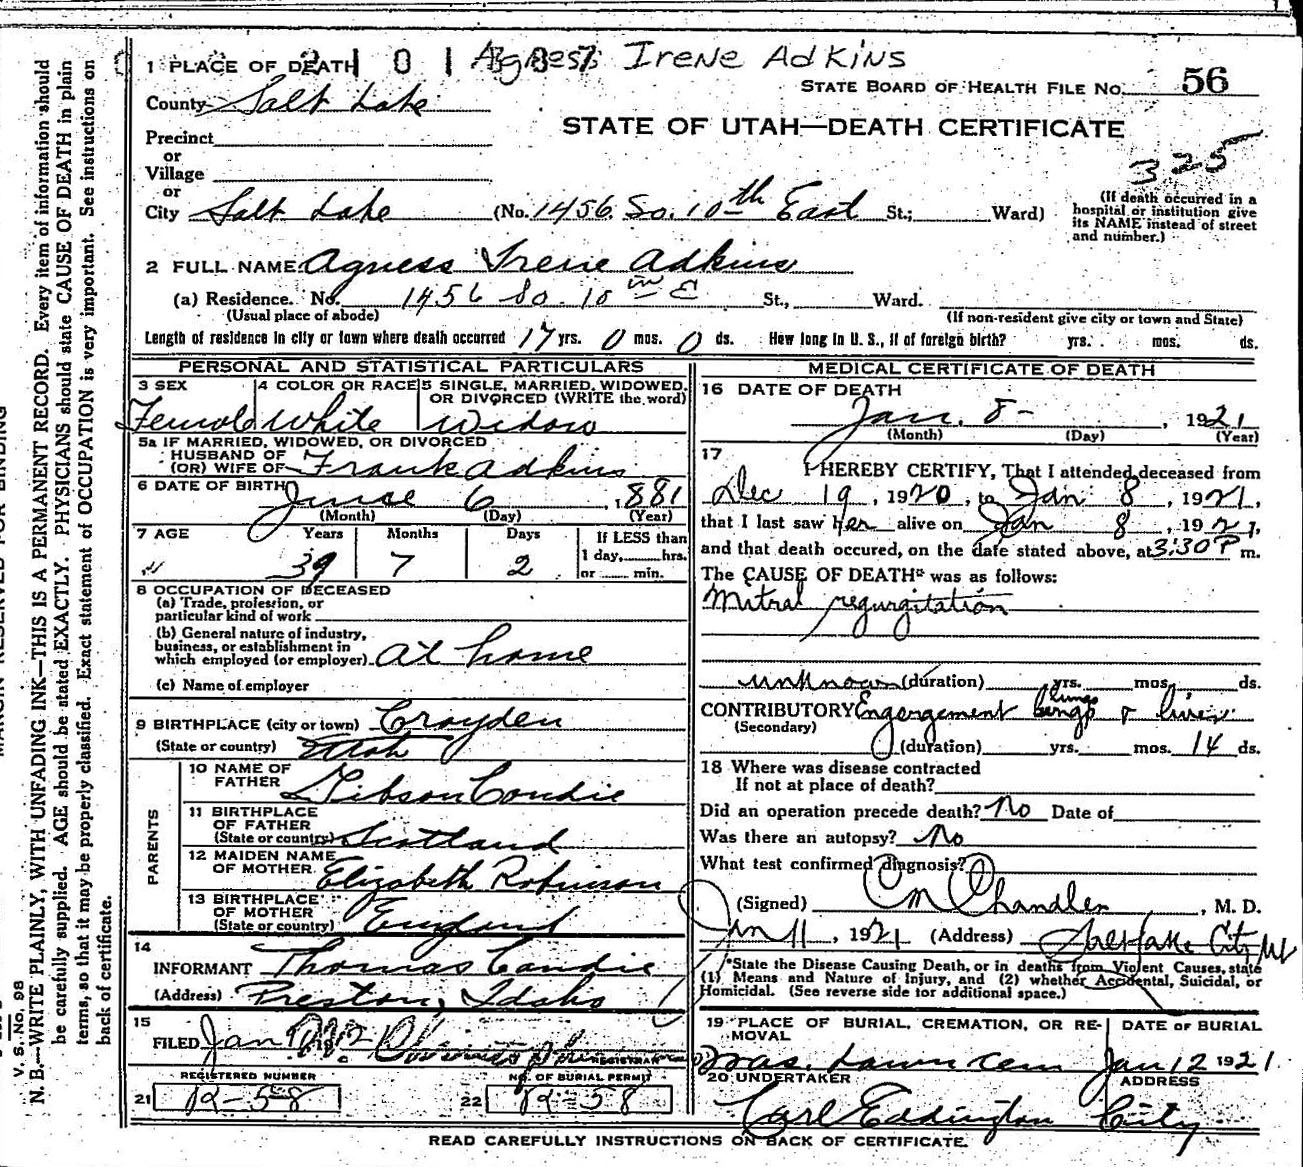 Agness Irene Adkins
1 PLACE OF DEATH
STATE BOARD OF HEALTH FILE No. 56
County Salt Lake
STATE OF UTAH—DEATH CERTIFICATE
325
Precinct
or
Village
or
City Salt Lake (No. 1456 So. 10th East St.; Ward)
(If death occurred in a
hospital or institution give
its NAME instead of street
and number.)
2 FULL NAME Agness Irene Adkins
(a) Residence. No. 1456 So. 10th E St., Ward.
(Usual place of abode) (If non-resident give city or town and State)
Length of residence in city or town where death occurred 17 yrs. 0 mos. 0 ds. How long in U. S., if of foreign birth? yrs. mos. ds.
PERSONAL AND STATISTICAL PARTICULARS
3 SEX
Female
4 COLOR OR RACE
White
5 SINGLE, MARRIED, WIDOWED,
OR DIVORCED (WRITE the word)
Widow
5a IF MARRIED, WIDOWED, OR DIVORCED
HUSBAND OF
(OR) WIFE OF Frank Adkins
6 DATE OF BIRTH June 6, 1881
(Month) (Day) (Year)
7 AGE Years Months Days If LESS than
1 day, hrs.
or min.
39 7 2
8 OCCUPATION OF DECEASED
(a) Trade, profession, or
particular kind of work
(b) General nature of industry,
business, or establishment in
which employed (or employer) at home
(c) Name of employer
9 BIRTHPLACE (city or town) Croyden
(State or country) Utah
PARENTS
10 NAME OF
FATHER Gibson Condie
11 BIRTHPLACE
OF FATHER
(State or country) Scotland
12 MAIDEN NAME
OF MOTHER Elizabeth Robinson
13 BIRTHPLACE
OF MOTHER
(State or country) England
14
INFORMANT Thomas Condie
(Address) Preston, Idaho
15
FILED Jan
REGISTRAR
REGISTERED NUMBER NO. OF BURIAL PERMIT
21 R-58 22 R-58
MEDICAL CERTIFICATE OF DEATH
16 DATE OF DEATH
Jan. 8 - , 1921
(Month) (Day) (Year)
17
I HEREBY CERTIFY, That I attended deceased from
Dec 19, 1920, to Jan 8, 1921,
that I last saw her alive on Jan 8, 1921,
and that death occured, on the date stated above, at 3:30 P m.
The CAUSE OF DEATH* was as follows:
Mitral regurgitation
unknown (duration) yrs. mos. ds.
CONTRIBUTORY Engorgement lungs & liver
(Secondary)
(duration) yrs. mos. 14 ds.
18 Where was disease contracted
If not at place of death?
Did an operation precede death? No Date of
Was there an autopsy? No
What test confirmed diagnosis?
(Signed) C M Chandler, M. D.
Jan 11, 1921 (Address) Salt Lake City, Ut
*State the Disease Causing Death, or in deaths from Violent Causes, state
(1) Means and Nature of Injury, and (2) whether Accidental, Suicidal, or
Homicidal. (See reverse side for additional space.)
19 PLACE OF BURIAL, CREMATION, OR RE-
MOVAL
Was. Lawn Cem
DATE OF BURIAL
Jan 12 1921
20 UNDERTAKER
Carl Eddington
ADDRESS
City
READ CAREFULLY INSTRUCTIONS ON BACK OF CERTIFICATE.
MARGIN RESERVED FOR BINDING
V. S. No. 98
N. B.—WRITE PLAINLY, WITH UNFADING INK—THIS IS A PERMANENT RECORD. Every item of information should
be carefully supplied. AGE should be stated EXACTLY. PHYSICIANS should state CAUSE OF DEATH in plain
terms, so that it may be properly classified. Exact statement of OCCUPATION is very important. See instructions on
back of certificate.